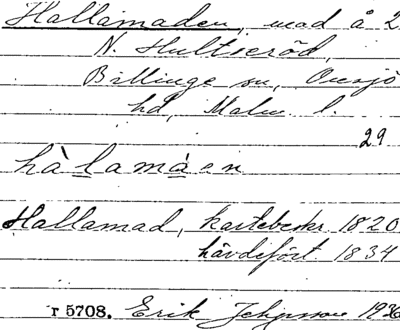 Hallamaden, mad å 2
N. Hultseröd,
Billinge sn, Onsjö
hd, Malm. l.
29
hàlamáen
Hallamad, kartebeskr 1820
hävdeført 1834
r 5708. Erik 1936